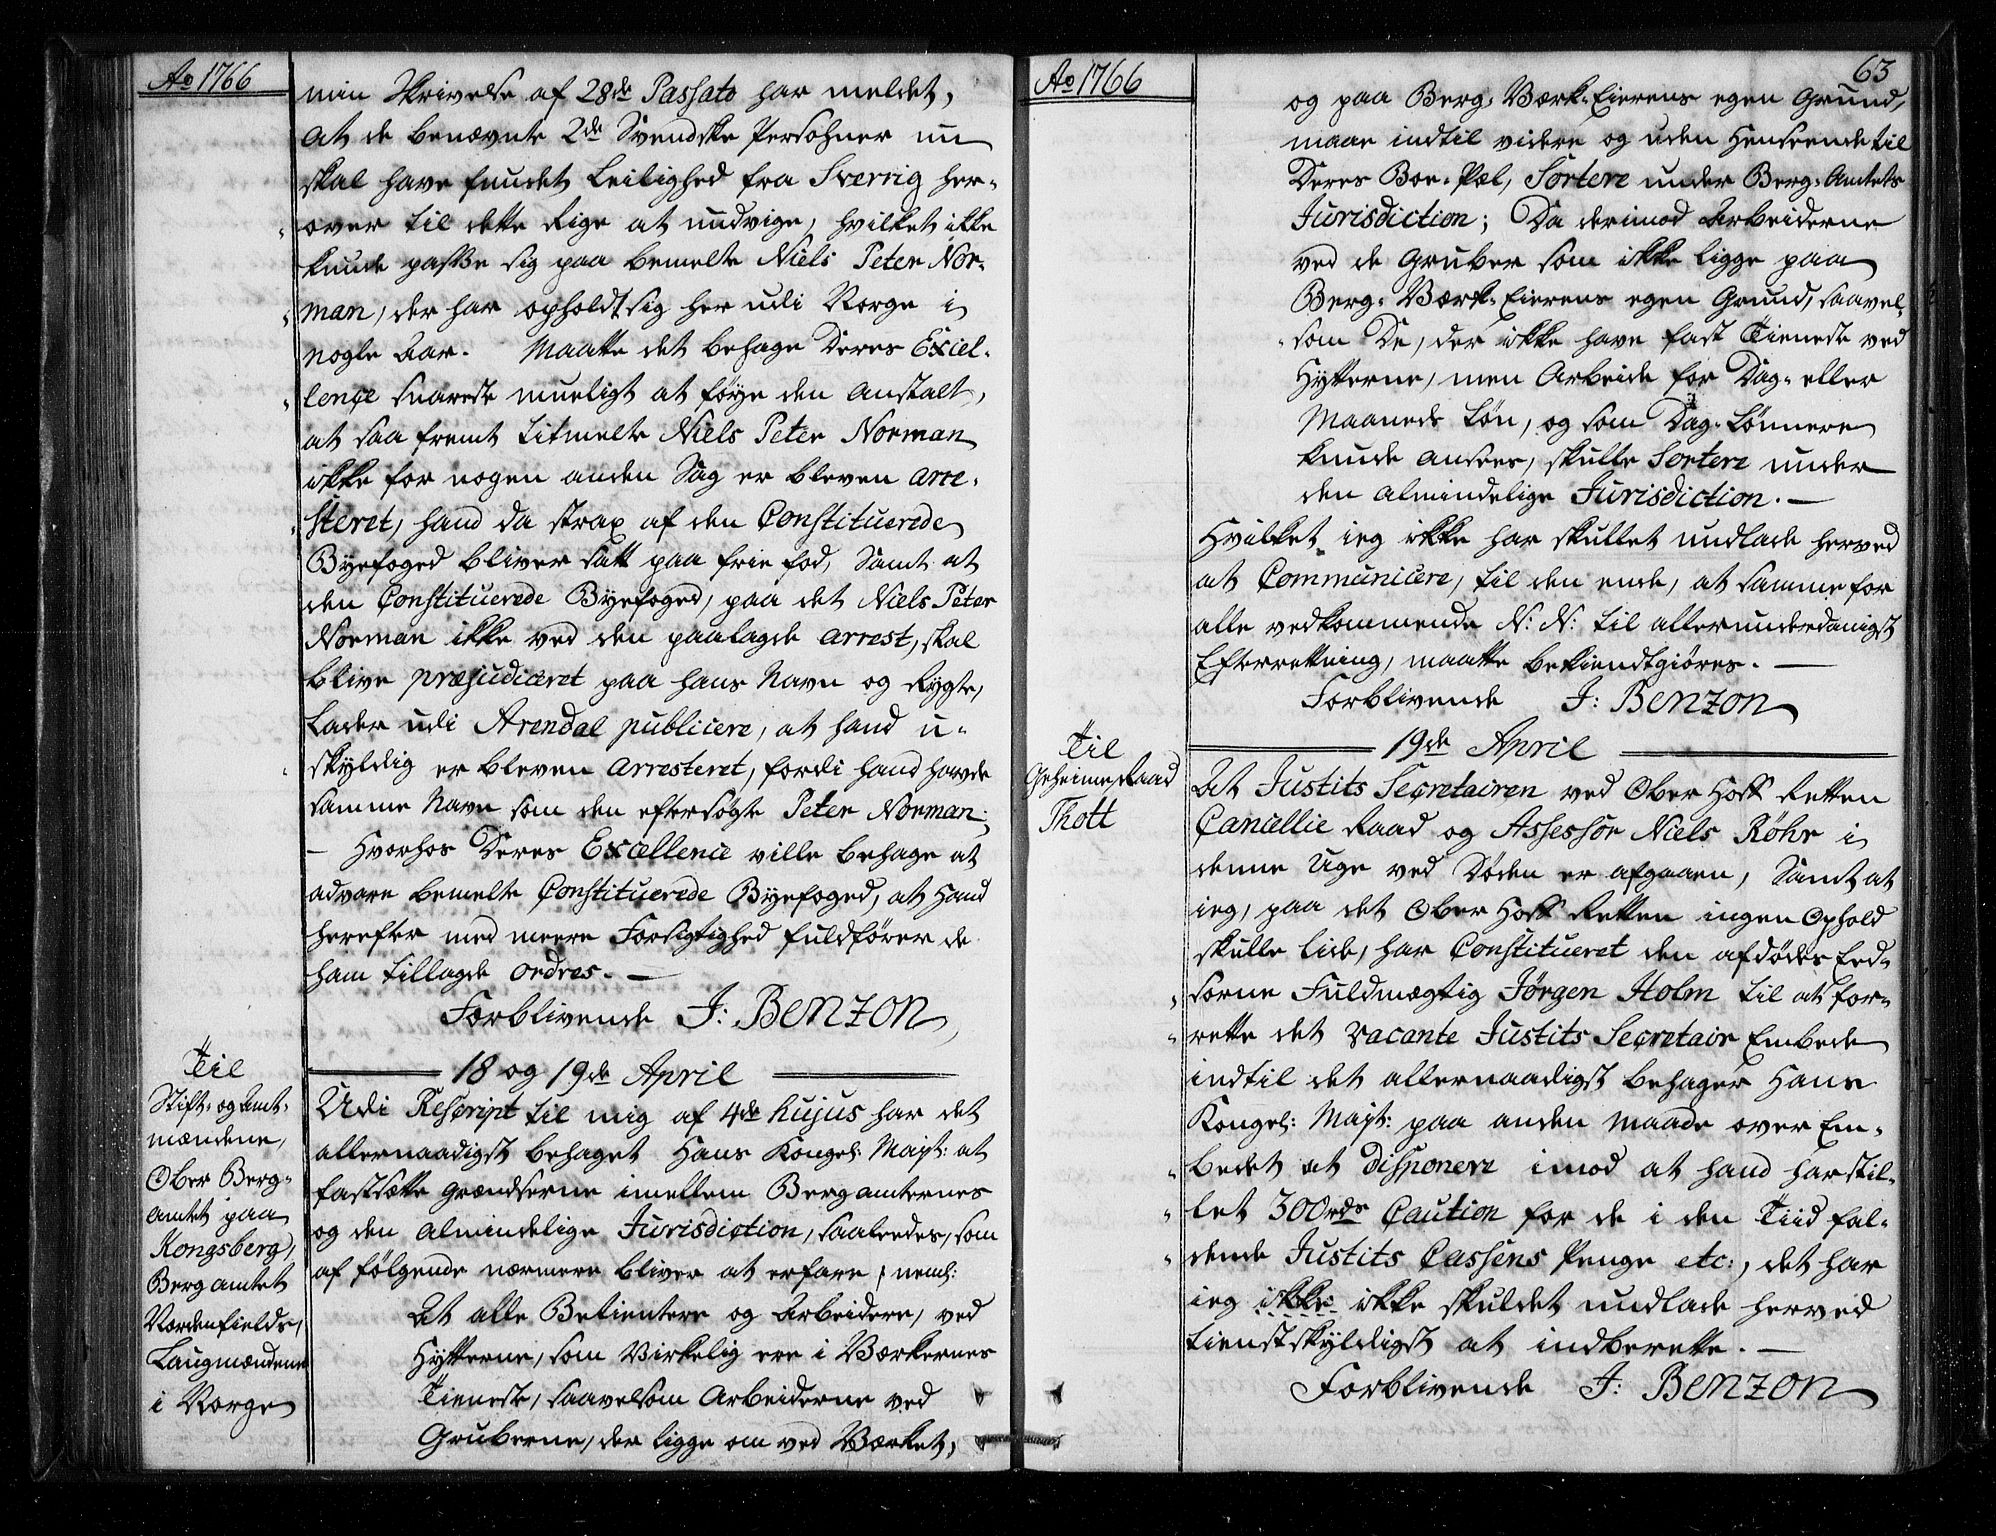 Ao 1766
min Skrivelse af 28de Passato har meldet,
at de benævnte 2de Svendske Persohner nu
skal have fundet Leilighed fra Sverrig her-
over til dette Rige at undvige, hvilket ikke
kunde passe sig paa bemelte Niels Peter Nor-
man, der har opholdt sig her udi Norge i
nogle Aar. Maatte det behage Deres Excel-
lençe snareste mueligt at føye den Anstalt,
at saa fremt titmelte Niels Peter Norman
ikke for nogen anden Sag er bleven arre-
steret, hand da strax af den Constituerede
Byefoged bliver satt paa frie fod, Samt at
den Constituerede Byefoged, paa det Niels Peter
Norman ikke ved den paalagde arrest, skal
blive præjudiceret paa hans Navn og Rygte,
Lader udi Arendal publicere, at hand u-
skyldig er bleven arresteret, fordi hand havde
samme Navn som den eftersøgte Peter Norman;
- Hvorhos Deres Excellence ville behage at
advare bemelte Constituerede Byefoged, at hand
herefter med meere Forsigtighed fuldfører de
ham tillagde ordres. —
Forblivende J: Benzon
18 og 19de April
Til
Stift- og Amt-
mændene,
Ober Berg-
amtet paa
Kongsberg,
Berg amtet
Nordenfields,
Laugmændene
i Norge
Udi Rescript til mig af 4de hujus har det
allernaadigst behaget Hans Kongel: Majt: at
fastsætte Grændserne imellem Berg amternes
og den almindelige Jurisdiction, saaledes, som
af følgende nærmere bliver at erfare, neml:
At alle Betientere og Arbeidere, ved
Hytterne, som Virkelig ere i Værkernes
Tieneste, saavelsom Arbeiderne ved
Gruberne, der ligge om ved Værket,
Ao 1766
63
og paa Berg-Værk-Eierens egen Grund,
maae indtil videre og uden Henseende til
Deres Boe-Pæl, Sortere under Berg-Amtets
Jurisdiction; Da derimod Arbeiderne
ved de Gruber som ikke ligge paa
Berg-Værk-Eierens egen Grund, saavel-
som De, der ikke have fast Tieneste ved
Hytterne, men Arbeide for Dag- eller
Maaneds Løn, og som Dag-Lønnere
kunde ansees, skulle Sortere under
den almindelige Jurisdiction. —
Hvilket ieg ikke har skullet undlade herved
at Communicere, til den ende, at samme for
alle vedkommende N: N: til allerunderdanigst
Efterretning, maatte bekiendtgiøres. —
Forblivende J: Benzon
19de April
Til
Geheime Raad
Thott
At Justits Secretairen ved Ober Hoff Retten
Cancellie Raad og Assessor Niels Röhr i
denne Uge ved Døden er afgaaen, Samt at
ieg, paa det Ober Hoff Retten ingen Ophold
skulle lide, har Constitueret den afdødes Eed-
sorne Fuldmægtig Jörgen Holm til at for-
rette det vacante Justits Secretair Embede
indtil det allernaadigst behager Hans
Kongel: Majt: paa anden Maade over Em-
bedet at disponere imod at hand har stil-
let 300 rdr Caution for de i den Tiid fal-
dende Justits Cassens Penge etc:, det har
ieg ikke ikke skuldet undlade herved
tienstskyldigst at indberette. —
Forblivende J: Benzon